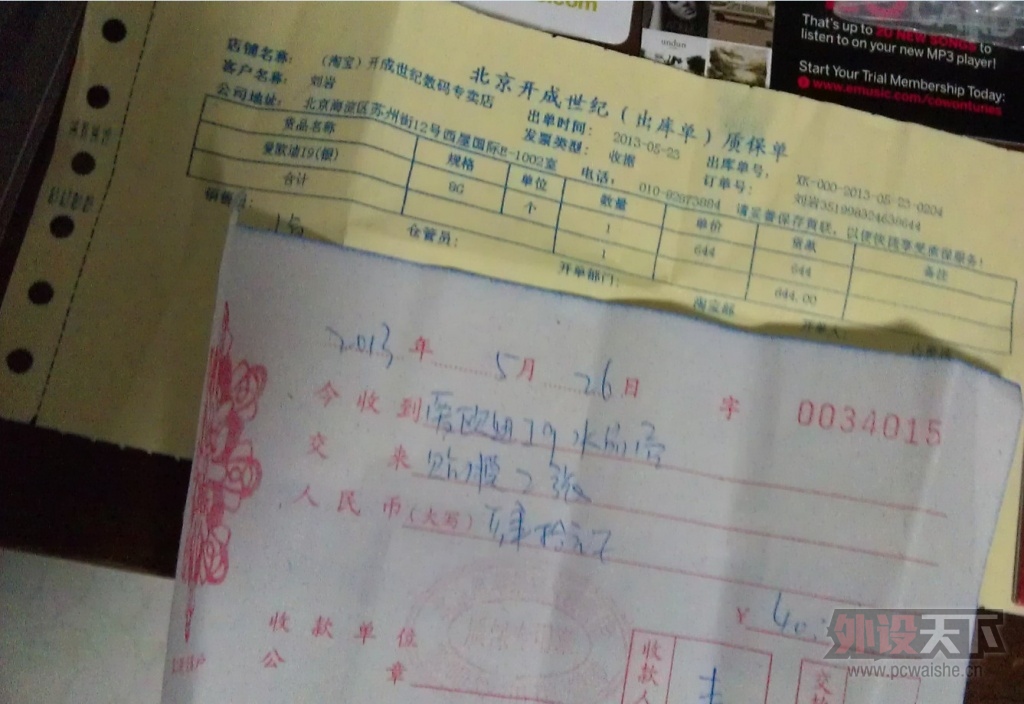 .com
That's up to 20 NEW SONGS to
listen to on your new MP3 player!
Start Your Trial Membership Today:
www.emusic.com/cowontunes
北京开成世纪（出库单）质保单
店铺名称： （淘宝）开成世纪数码专卖店 出单时间： 2013-05-25 出库单号： XK-000-2013-05-25-0204
客户名称： 刘岩 发票类型： 收据 订单号： 刘岩351998324638644
公司地址： 北京海淀区苏州街12号西屋国际E-1002室 电话： 请妥善保存贵联，以便快捷享受质保服务！
货品名称 规格 单位 数量 单价 货款 备注
爱欧迪I9(银) 8G 个 1 644 644
合计 1 644.00
仓管员： 开单部门： 淘宝部 开单人
2013 年 5 月 26 日 字 0034015
今收到 I9 水晶壳
交来 贴膜2张
人民币(大写) 肆拾元正
¥ 40.
收款单位
公章
收款人
交款
外设天下
www.pcwaishe.cn